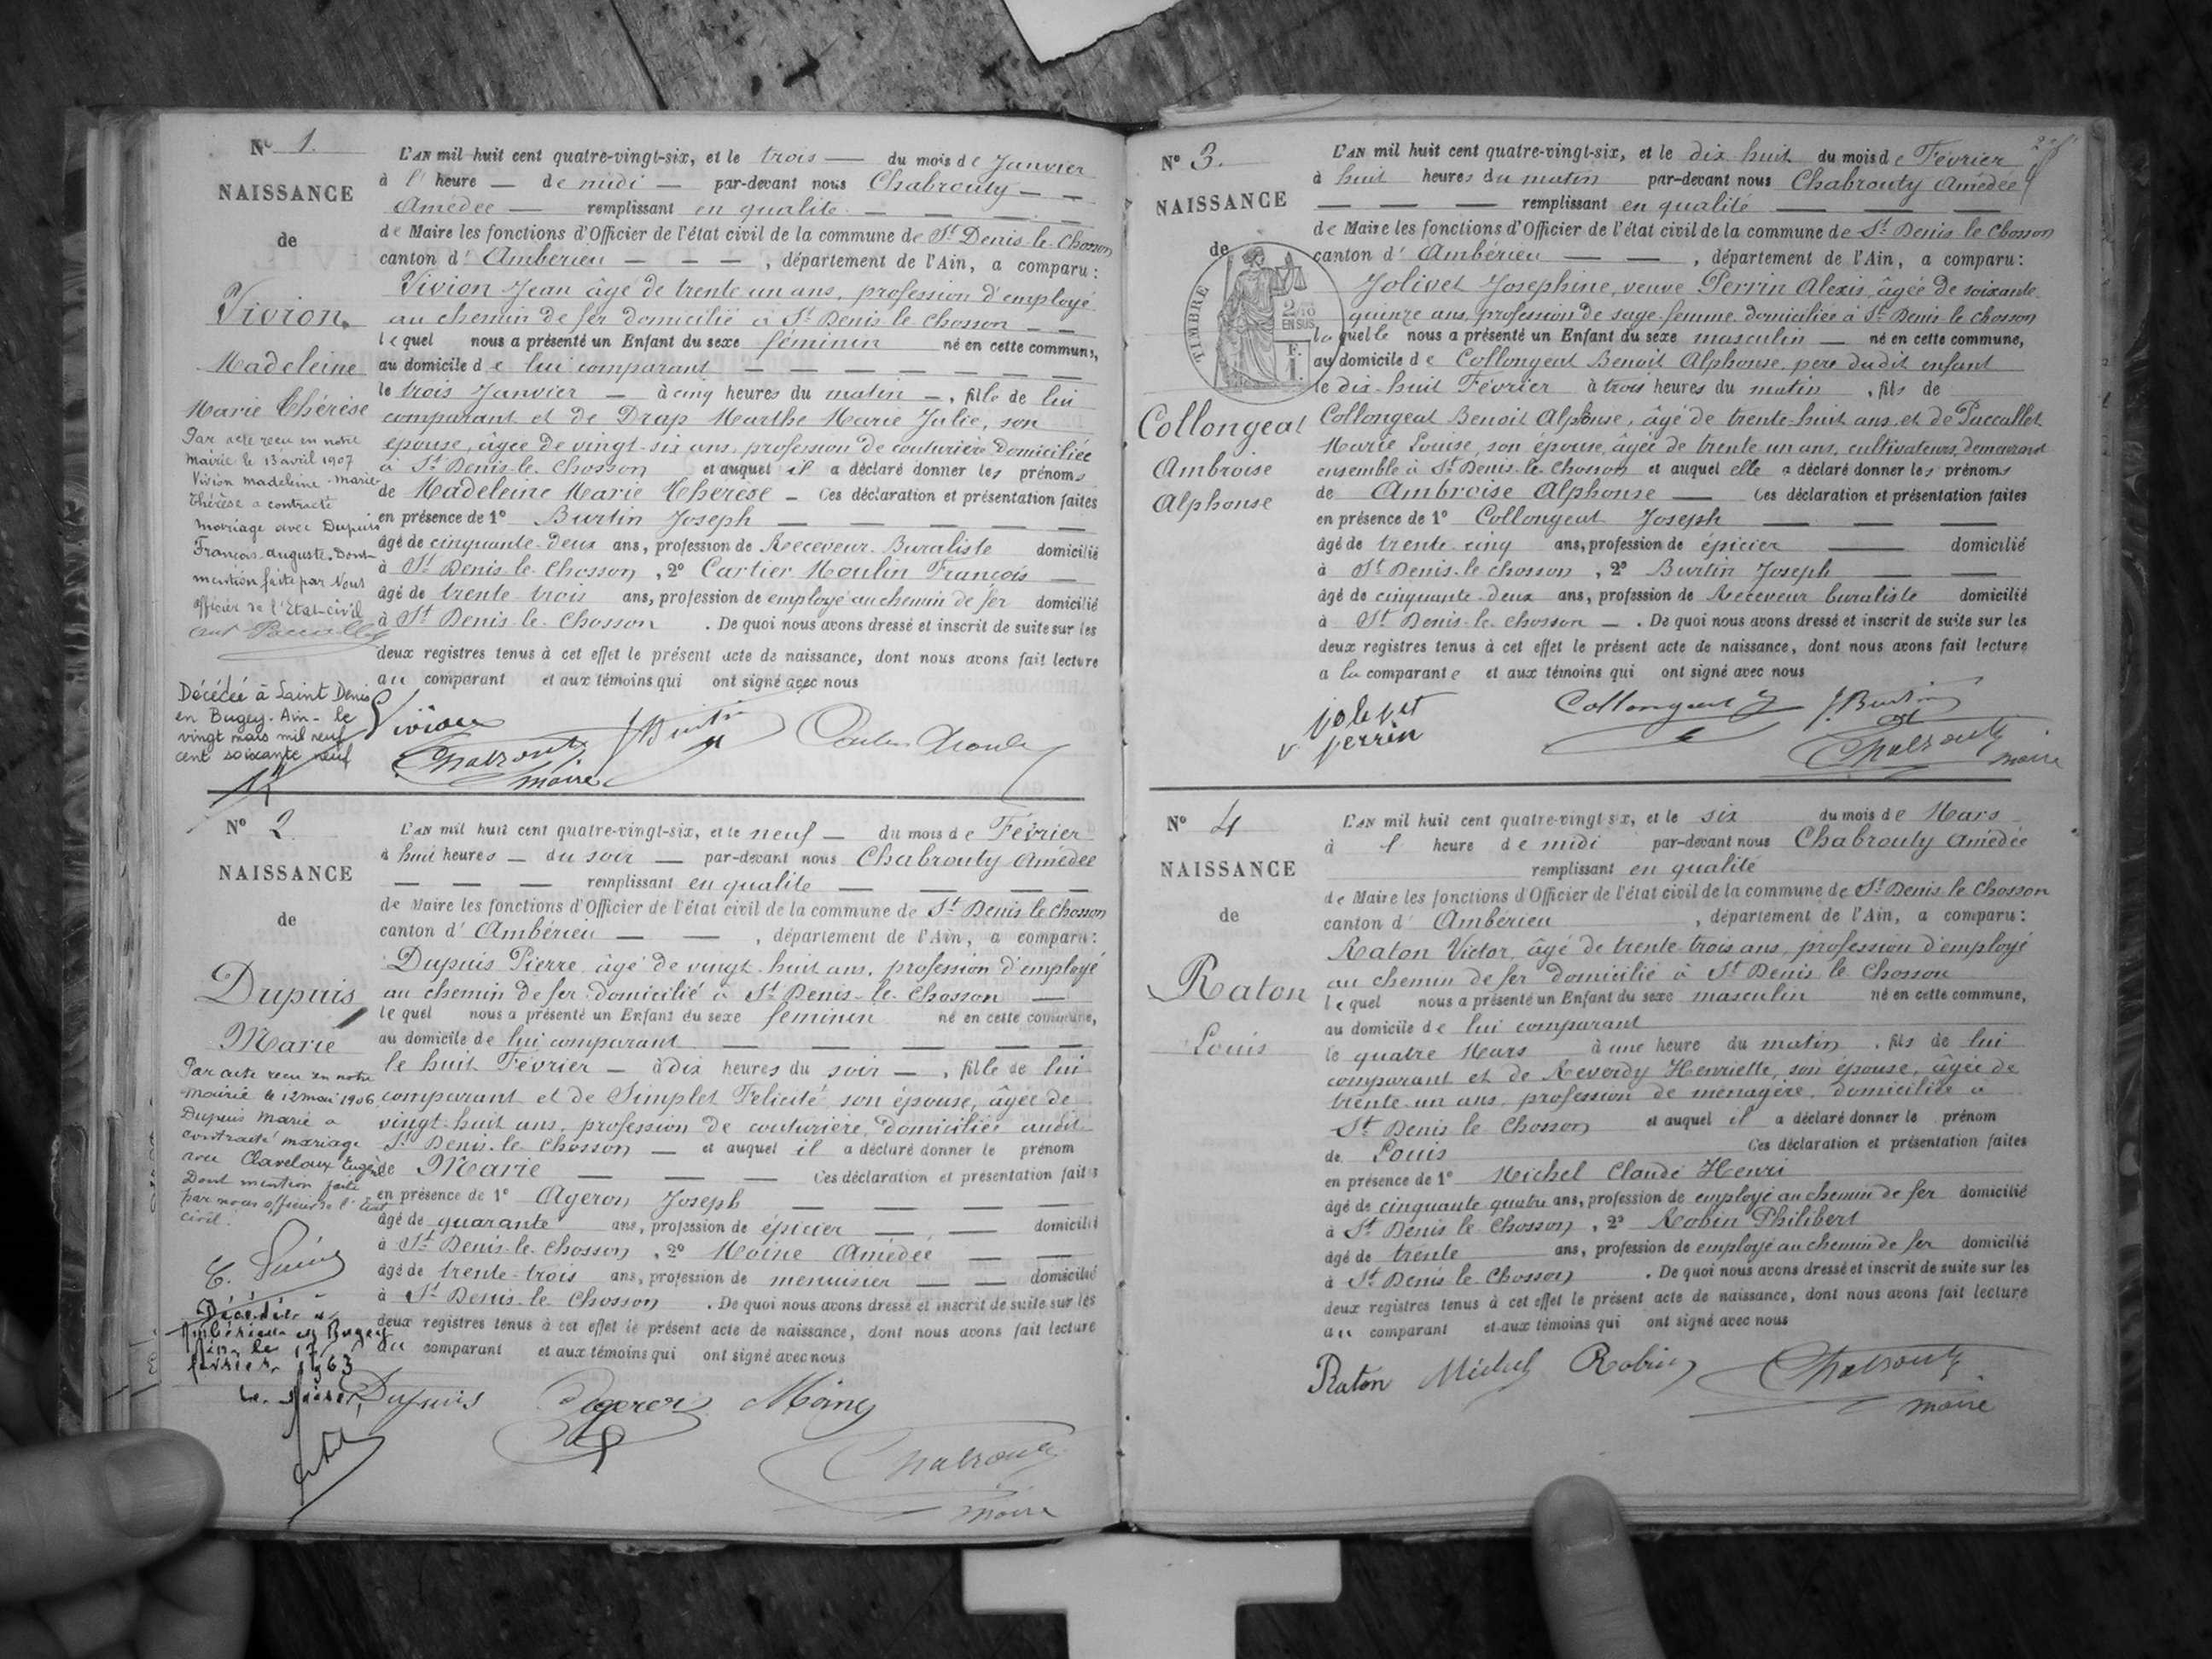 N° 1.
NAISSANCE
de
Vivion
Madeleine
Marie Thérèse
Par acte reçu en notre
mairie le 13 avril 1907
Vivion madeleine-marie-
Thérèse a contracté
mariage avec Dupuis
François-auguste. Dont
mention faite par Nous
officier de l'Etat-civil
Décédée à Saint Denis
en Bugey-Ain- le
vingt mars mil neuf
cent soixante neuf
L'AN mil huit cent quatre-vingt-six, et le trois — du mois de Janvier
à l' heure — de midi — par-devant nous Chabrouty — —
Amédée — remplissant en qualité — — — —
de Maire les fonctions d'Officier de l'état civil de la commune de St Denis-le-Chosson
canton d' Ambérieu — — — , département de l'Ain, a comparu :
Vivion Jean âgé de trente un ans, profession d'employé
au chemin de fer domicilié à St Denis le Chosson — —
lequel nous a présenté un Enfant du sexe féminin né en cette commune,
au domicile de lui comparant — — — — — —
le trois Janvier — à cinq heures du matin —, fille de lui
comparant et de Drap Marthe Marie Julie, son
épouse, âgée de vingt-six ans, profession de couturière domiciliée
à St Denis-le-Chosson et auquel il a déclaré donner les prénoms
de Madeleine Marie Thérèse — Ces déclaration et présentation faites
en présence de 1° Burtin Joseph — — — — —
âgé de cinquante-deux ans, profession de Receveur-Buraliste domicilié
à St Denis-le-Chosson , 2° Cartier Moulin François —
âgé de trente trois ans, profession de employé au chemin de fer domicilié
à St Denis-le-Chosson . De quoi nous avons dressé et inscrit de suite sur les
deux registres tenus à cet effet le présent acte de naissance, dont nous avons fait lecture
au comparant et aux témoins qui ont signé avec nous
Vivion J. Burtin
Chabrouty
maire
N° 2.
NAISSANCE
de
Dupuis
Marie
Par acte reçu en notre
mairie le 12 mai 1906
Dupuis Marie a
contracté mariage
avec Claveloux Eugène
Dont mention faite
par nous officier de l'Etat
civil.
Décédée à
Ambérieu en Bugey
Ain, le 17
février 1963
Le Maire,
L'AN mil huit cent quatre-vingt-six, et le neuf — du mois de Février
à huit heures — du soir — par-devant nous Chabrouty Amédée
— — — remplissant en qualité — — — —
de Maire les fonctions d'Officier de l'état civil de la commune de St Denis le Chosson
canton d' Ambérieu — — , département de l'Ain, a comparu :
Dupuis Pierre âgé de vingt-huit ans, profession d'employé
au chemin de fer domicilié à St Denis-le-Chosson —
lequel nous a présenté un Enfant du sexe féminin né en cette commune,
au domicile de lui comparant — — — — —
le huit Février — à dix heures du soir —, fille de lui
comparant et de Simplet Felicité son épouse, âgée de
vingt-huit ans, profession de couturière, domiciliée audit
St Denis-le-Chosson — et auquel il a déclaré donner le prénom
de Marie — — — Ces déclaration et présentation faites
en présence de 1° Ageron Joseph — — — —
âgé de quarante ans, profession de épicier — — domicilié
à St Denis-le-Chosson , 2° Moine Amédée — —
âgé de trente-trois ans, profession de menuisier — — domicilié
à St Denis-le-Chosson . De quoi nous avons dressé et inscrit de suite sur les
deux registres tenus à cet effet le présent acte de naissance, dont nous avons fait lecture
au comparant et aux témoins qui ont signé avec nous
Dupuis Ageron Moine
Chabrouty
maire
N° 3.
NAISSANCE
de
TIMBRE
EN SUS
Collongeat
Ambroise
Alphonse
L'AN mil huit cent quatre-vingt-six, et le dix huit du mois de Février
à huit heures du matin par-devant nous Chabrouty Amédée
— — — remplissant en qualité — — —
de Maire les fonctions d'Officier de l'état civil de la commune de St Denis le Chosson
canton d' Ambérieu — — , département de l'Ain, a comparu :
Jolivet Josephine, veuve Perrin Alexis, âgée de soixante
quinze ans, profession de sage-femme domiciliée à St Denis-le-Chosson
laquelle nous a présenté un Enfant du sexe masculin — né en cette commune,
au domicile de Collongeat Benoit Alphonse, père dudit enfant
le dix-huit Février à trois heures du matin , fils de
Collongeat Benoit Alphonse, âgé de trente-huit ans, et de Paccallet
Marie Louise, son épouse, âgée de trente un ans, cultivateurs, demeurant
ensemble à St Denis-le-Chosson et auquel elle a déclaré donner les prénoms
de Ambroise Alphonse — Ces déclaration et présentation faites
en présence de 1° Collongeat Joseph — — —
âgé de trente-cinq ans, profession de épicier — domicilié
à St Denis-le-Chosson , 2° Burtin Joseph — —
âgé de cinquante-deux ans, profession de Receveur buraliste domicilié
à St Denis-le-Chosson — . De quoi nous avons dressé et inscrit de suite sur les
deux registres tenus à cet effet le présent acte de naissance, dont nous avons fait lecture
a la comparante et aux témoins qui ont signé avec nous
jolivet Collongeat J. J. Burtin
v perrin Chabrouty
maire
N° 4
NAISSANCE
de
Raton
Louis
L'AN mil huit cent quatre-vingt-six, et le six du mois de Mars
à l' heure de midi par-devant nous Chabrouty Amédée
remplissant en qualité
de Maire les fonctions d'Officier de l'état civil de la commune de St Denis le Chosson
canton d' Ambérieu , département de l'Ain, a comparu :
Raton Victor, âgé de trente-trois ans, profession d'employé
au chemin de fer domicilié à St Denis le Chosson
lequel nous a présenté un Enfant du sexe masculin né en cette commune,
au domicile de lui comparant
le quatre Mars à une heure du matin , fils de lui
comparant et de Reverdy Henriette, son épouse, âgée de
trente-un ans, profession de ménagère, domiciliée à
St Denis le Chosson et auquel il a déclaré donner le prénom
de Louis Ces déclaration et présentation faites
en présence de 1° Michel Claude Henri
âgé de cinquante quatre ans, profession de employé au chemin de fer domicilié
à St Denis le Chosson , 2° Robin Philibert
âgé de trente ans, profession de employé au chemin de fer domicilié
à St Denis le Chosson . De quoi nous avons dressé et inscrit de suite sur les
deux registres tenus à cet effet le présent acte de naissance, dont nous avons fait lecture
au comparant et aux témoins qui ont signé avec nous
Raton Michel Robin Chabrouty
maire